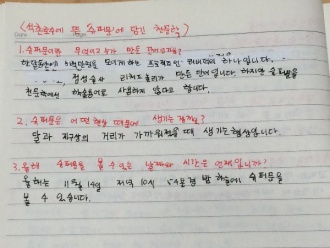 <석촌호수에 뜬 슈퍼문에 담긴 천문학>
1. 슈퍼문이란 무엇이고 누가 만든 단어인가요?
한달동안의 희망만큼을 모이게하는 프로젝트인
정성술사 리처드 놀리가 만든 단어입니다. 하지만 슈퍼문을
천문학에서 학술용어로 사용하지 않다고 합니다.
2. 슈퍼문은 어떤 현상 때문에 생기는 걸까요?
달과 지구상의 거리가 가까워졌을 때 생기는 현상입니다.
3. 올해 슈퍼문을 볼 수 있는 날짜와 시간은 언제입니까?
올해는 11월 14일 저녁 10시 54분경 밤 하늘에 슈퍼문을
볼 수 있습니다.